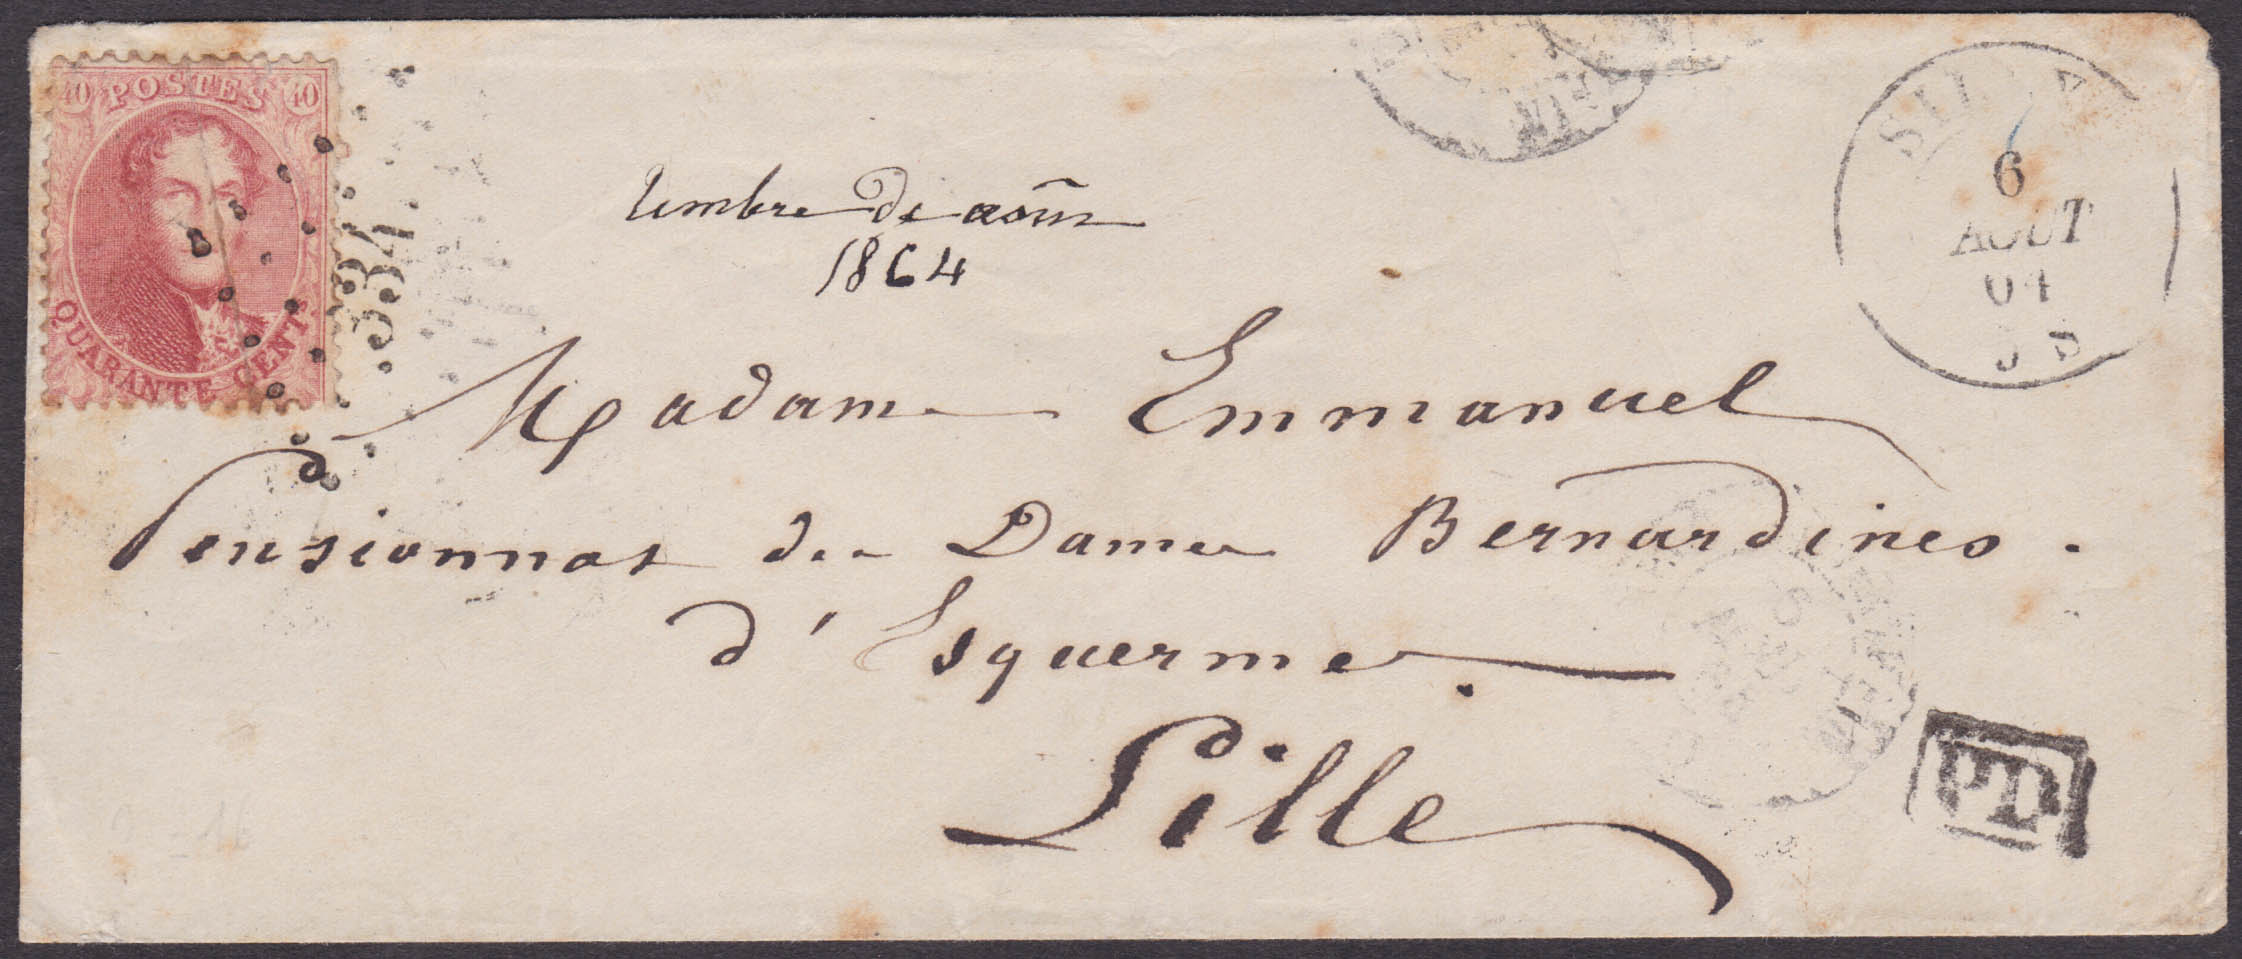 40 POSTES 40
QUARANTE CENTS
334
6
AOUT
timbre de août
1864
Madame Emmanuel
Pensionnat des Dames Bernardines.
d'Esquermes.
Lille
PD